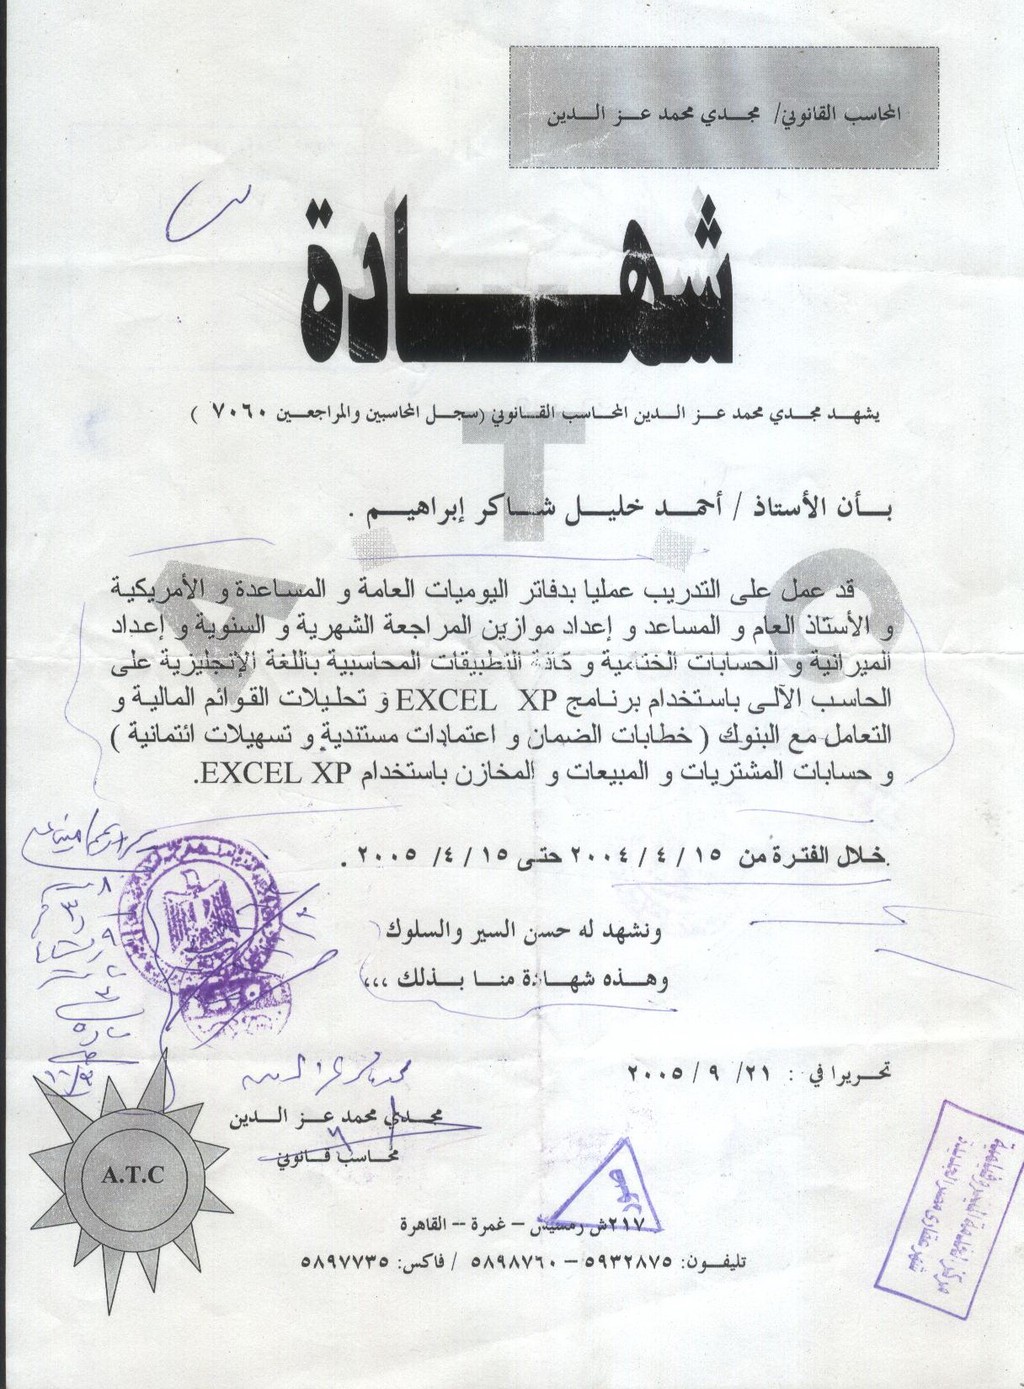 المحاسب القانوني/ مجدي محمد عز الدين
شهادة
يشهد مجدي محمد عز الدين المحاسب القانوني (سجل المحاسبين والمراجعين ٧٠٦٠ )
بأن الأستاذ / أحمد خليل شاكر إبراهيم .
قد عمل على التدريب عمليا بدفاتر اليوميات العامة و المساعدة و الأمريكية
و الأستاذ العام و المساعد و إعداد موازين المراجعة الشهرية و السنوية و إعداد
الميرانية و الحسابات الختامية و كافة التطبيقات المحاسبية باللغة الإنجليزية على
الحاسب الآلى باستخدام برنامج EXCEL XP و تحليلات القوائم المالية و
التعامل مع البنوك ( خطابات الضمان و اعتمادات مستندية و تسهيلات ائتمانية )
و حسابات المشتريات و المبيعات و المخازن باستخدام EXCEL XP.
خلال الفترة من ١٥ / ٤ / ٢٠٠٤ حتى ١٥ / ٤ / ٢٠٠٥ .
ونشهد له حسن السير والسلوك
وهذه شهادة منا بذلك ،،،
تحريرا في : ٢١ / ٩ / ٢٠٠٥
مجدي محمد عز الدين
محاسب قانوني
A.T.C
٢١٧ش رمسيس – غمرة – القاهرة
تليفون: ٥٩٣٢٨٧٥ – ٥٨٩٨٧٦٠ / فاكس: ٥٨٩٧٧٣٥